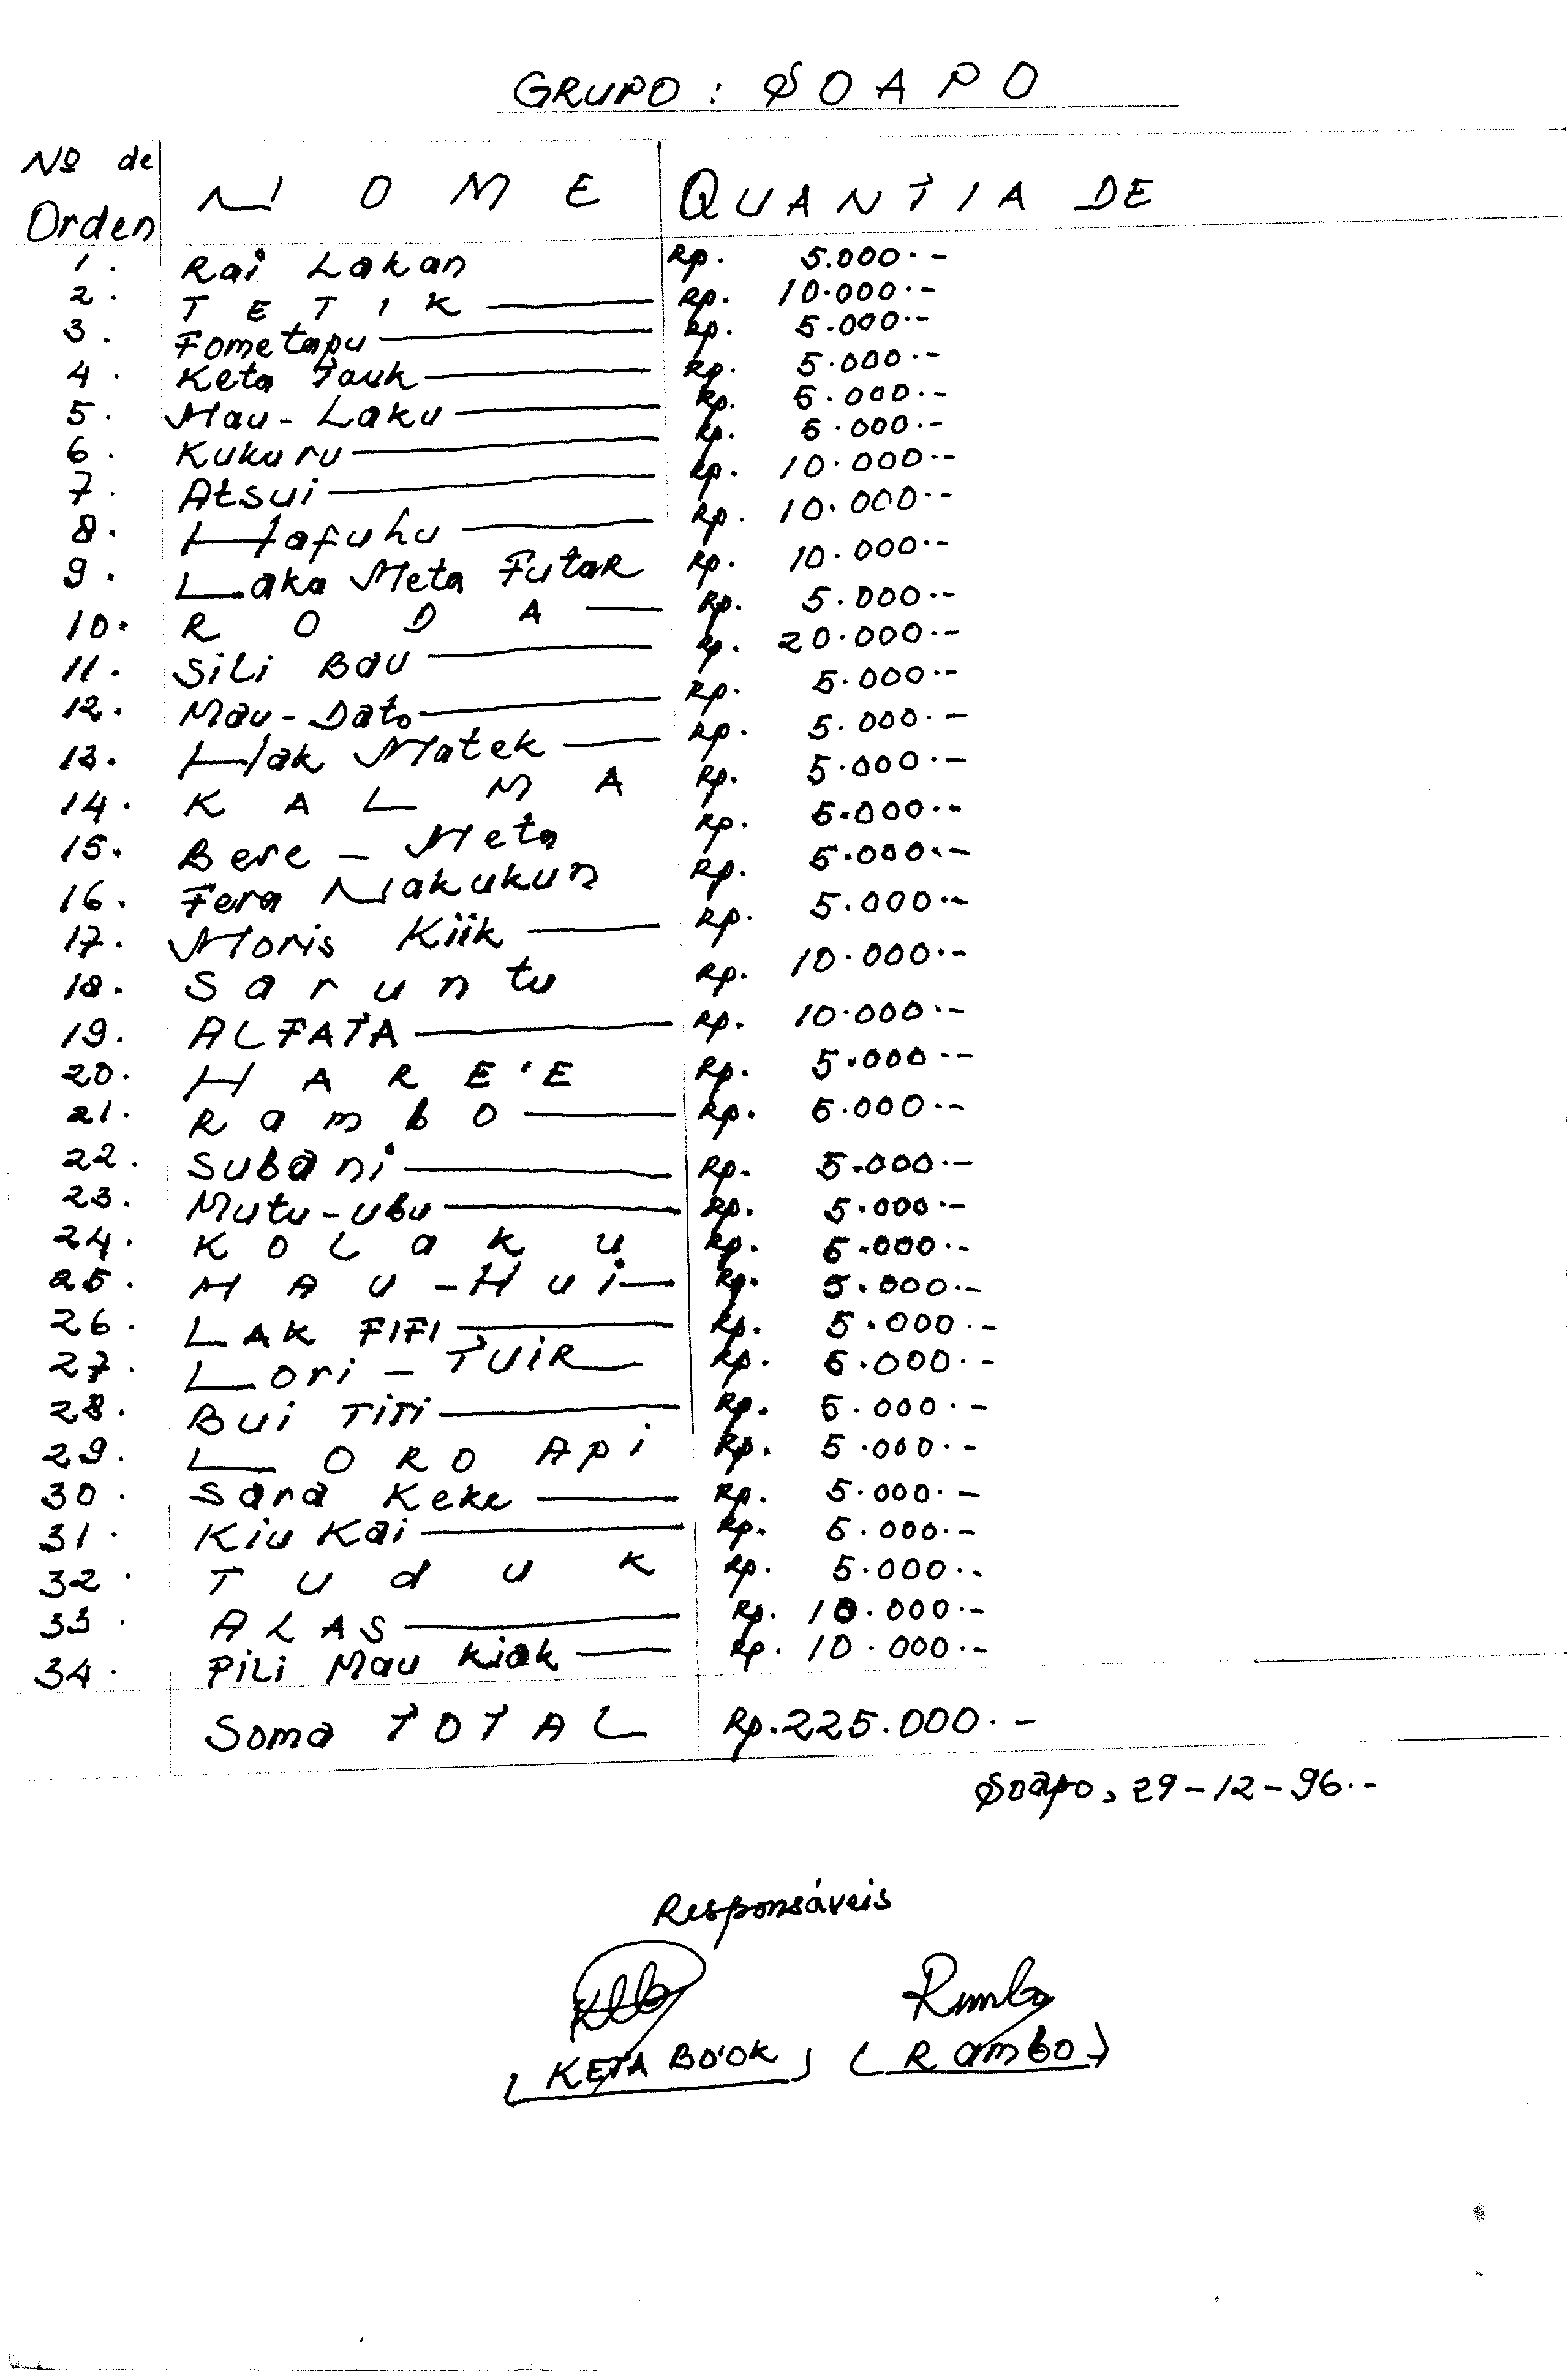 GRUPO : SOAPO
Nº de Orden NOME QUANTIA DE
1. Rai Lakan Rp. 5.000.-
2. TETIK Rp. 10.000.-
3. Fometapu Rp. 5.000.-
4. Keta Tauk Rp. 5.000.-
5. Mau-Laku Rp. 5.000.-
6. Kukuru Rp. 5.000.-
7. Atsui Rp. 10.000.-
8. Hafuhu Rp. 10.000.-
9. Laka Meta Futar Rp. 10.000.-
10. RODA Rp. 5.000.-
11. Sili Bau Rp. 20.000.-
12. Mau-Dato Rp. 5.000.-
13. Hak Matek Rp. 5.000.-
14. KALMA Rp. 5.000.-
15. Bere-Meta Rp. 5.000.-
16. Fera Nakukun Rp. 5.000.-
17. Moris Kiik Rp. 5.000.-
18. Saruntu Rp. 10.000.-
19. ALFATA Rp. 10.000.-
20. HARE'E Rp. 5.000.-
21. Rambo Rp. 5.000.-
22. Subani Rp. 5.000.-
23. Mutu-ubu Rp. 5.000.-
24. KOLaku Rp. 5.000.-
25. MAU-Hui Rp. 5.000.-
26. LAK FIFI Rp. 5.000.-
27. Lori-TUIR Rp. 5.000.-
28. Bui TiTi Rp. 5.000.-
29. LORO Api Rp. 5.000.-
30. Sara Keke Rp. 5.000.-
31. Kiu Kai Rp. 5.000.-
32. Tuduk Rp. 5.000.-
33. ALAS Rp. 10.000.-
34. Pili Mau Kiak Rp. 10.000.-
Soma TOTAL Rp. 225.000.-
Soapo, 29-12-96.-
Responsáveis
Rambo
(KETA BO'OK) (Rambo)